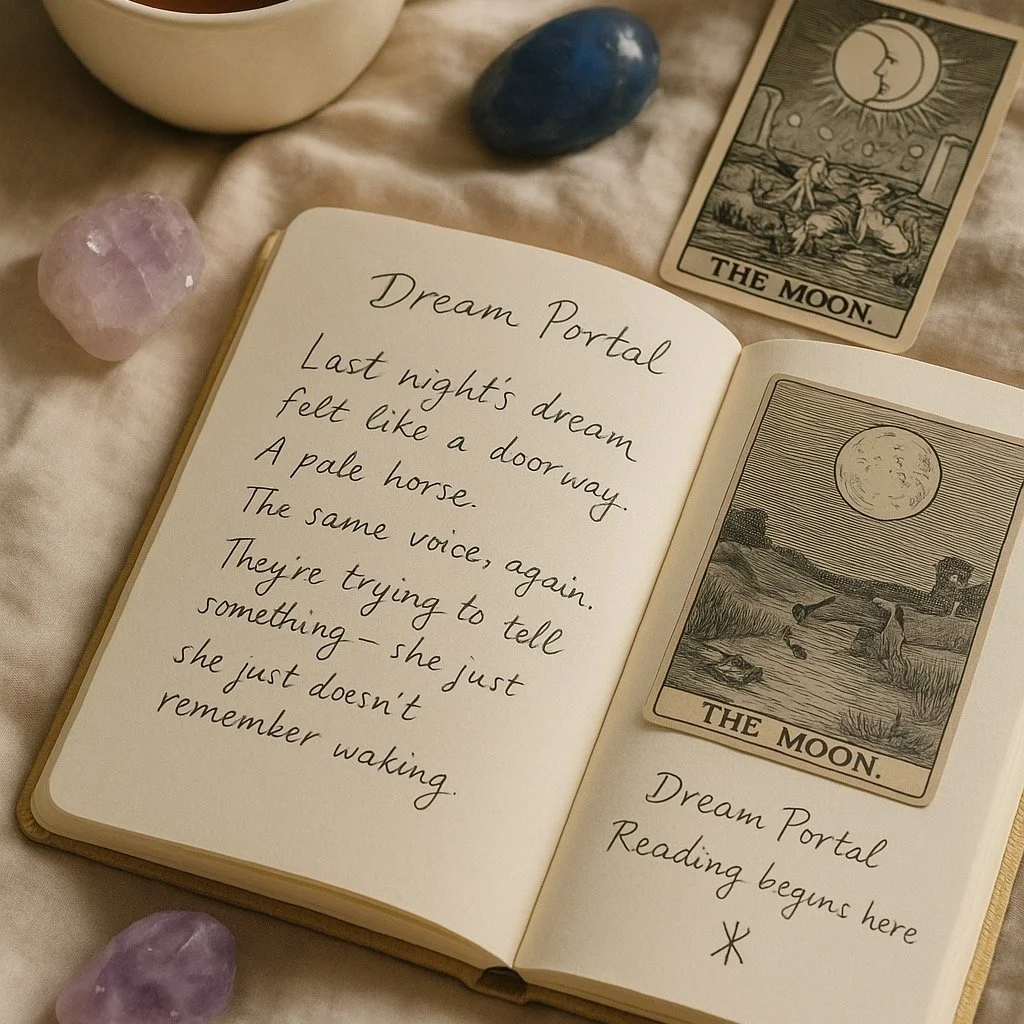 Dream Portal
Last night's dream
felt like a doorway.
A pale horse.
The same voice, again.
They're trying to tell
something – she just
she just doesn't
remember waking.
THE MOON.
THE MOON.
Dream Portal
Reading begins here